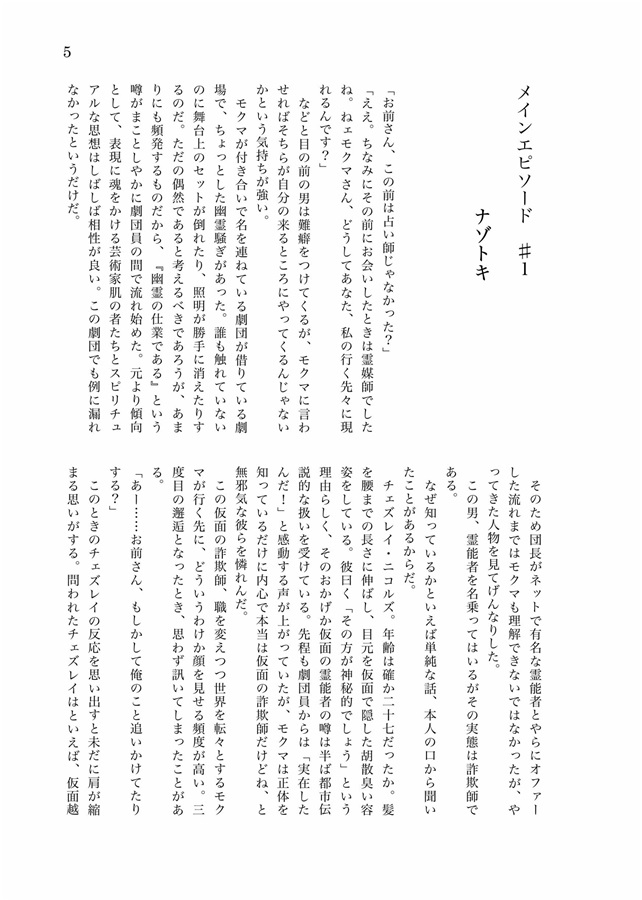 5
メインエピソード　♯1
ナゾトキ
「お前さん、この前は占い師じゃなかった？」
「ええ。ちなみにその前にお会いしたときは霊媒師でした
ね。ねェモクマさん、どうしてあなた、私の行く先々に現
れるんです？」
などと目の前の男は難癖をつけてくるが、モクマに言わ
せればそちらが自分の来るところにやってくるんじゃない
かという気持ちが強い。
モクマが付き合いで名を連ねている劇団が借りている劇
場で、ちょっとした幽霊騒ぎがあった。誰も触れていない
のに舞台上のセットが倒れたり、照明が勝手に消えたりす
るのだ。ただの偶然であると考えるべきであろうが、あま
りにも頻発するものだから、『幽霊の仕業である』という
噂がまことしやかに劇団員の間で流れ始めた。元より傾向
として、表現に魂をかける芸術家肌の者たちとスピリチュ
アルな思想はしばしば相性が良い。この劇団でも例に漏れ
なかったというだけだ。
そのため団長がネットで有名な霊能者とやらにオファー
した流れまではモクマも理解できないではなかったが、や
ってきた人物を見てげんなりした。
この男、霊能者を名乗ってはいるがその実態は詐欺師で
ある。
なぜ知っているかといえば単純な話、本人の口から聞い
たことがあるからだ。
チェズレイ・ニコルズ。年齢は確か二十七だったか。髪
を腰までの長さに伸ばし、目元を仮面で隠した胡散臭い容
姿をしている。彼曰く「その方が神秘的でしょう」という
理由らしく、そのおかげか仮面の霊能者の噂は半ば都市伝
説的な扱いを受けている。先程も劇団員からは「実在した
んだ！」と感動する声が上がっていたが、モクマは正体を
知っているだけに内心で本当は仮面の詐欺師だけどね、と
無邪気な彼らを憐れんだ。
この仮面の詐欺師、職を変えつつ世界を転々とするモク
マが行く先に、どういうわけか顔を見せる頻度が高い。三
度目の邂逅となったとき、思わず訊いてしまったことがあ
る。
「あー……お前さん、もしかして俺のこと追いかけてたり
する？」
このときのチェズレイの反応を思い出すと未だに肩が縮
まる思いがする。問われたチェズレイはといえば、仮面越